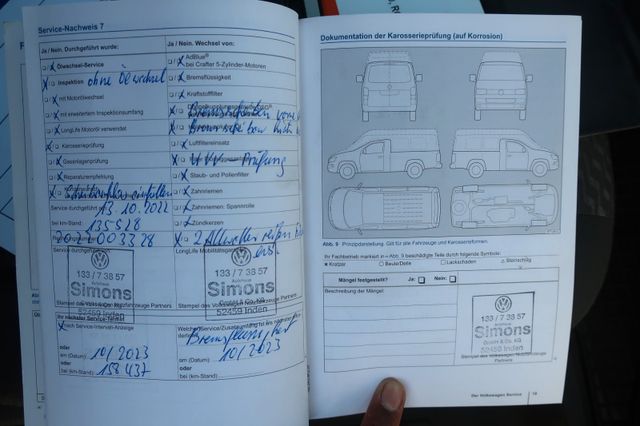 Service-Nachweis 7
Ja / Nein. Durchgeführt wurde:
Ölwechsel-Service
Inspektion ohne Ölwechsel
mit Motorölwechsel
mit erweitertem Inspektionsumfang
LongLife Motoröl verwendet
Karosserieprüfung
Gasanlagenprüfung
Reparaturempfehlung
Service durchgeführt 13.10.2022
bei km-Stand: 135528
2022003328
Service durchgeführt
133 / 7 38 57
Simons
52459 Inden
Stempel des Volkswagen Nutzfahrzeuge Partners
Ihr nächster Service-Termin:
nach Service-Intervall-Anzeige
oder
am (Datum): 10/2023
oder
bei (km-Stand): 158437
Ja / Nein. Wechsel von:
AdBlue®
bei Crafter 5-Zylinder-Motoren
Bremsflüssigkeit
Kraftstofffilter
Bremsscheiben
Luftfiltereinsatz
UVV-Prüfung
Staub- und Pollenfilter
Zahnriemen
Zahnriemen: Spannrolle
Zündkerzen
2 Allwetter reifen
LongLife Mobilitätsgarantie
133 / 7 38 57
Simons
GmbH & Co. KG
52459 Inden
Stempel des Volkswagen Nutzfahrzeuge Partners
Bremsflüssigkeit
am (Datum): 10/2023
oder
bei (km-Stand)
Dokumentation der Karosserieprüfung (auf Korrosion)
Abb. 9 Prinzipdarstellung. Gilt für alle Fahrzeuge und Karosserieformen.
Ihr Fachbetrieb markiert in ⇒ Abb. 9 beschädigte Teile durch folgende Symbole:
Kratzer Beule/Delle Lackschaden Steinschlag
Mängel festgestellt? Ja: Nein:
Beschreibung der Mängel:
133 / 7 38 57
Autohaus
Simons
GmbH & Co. KG
52459 Inden
Stempel des Volkswagen Nutzfahrzeuge
Partners
Der Volkswagen Service